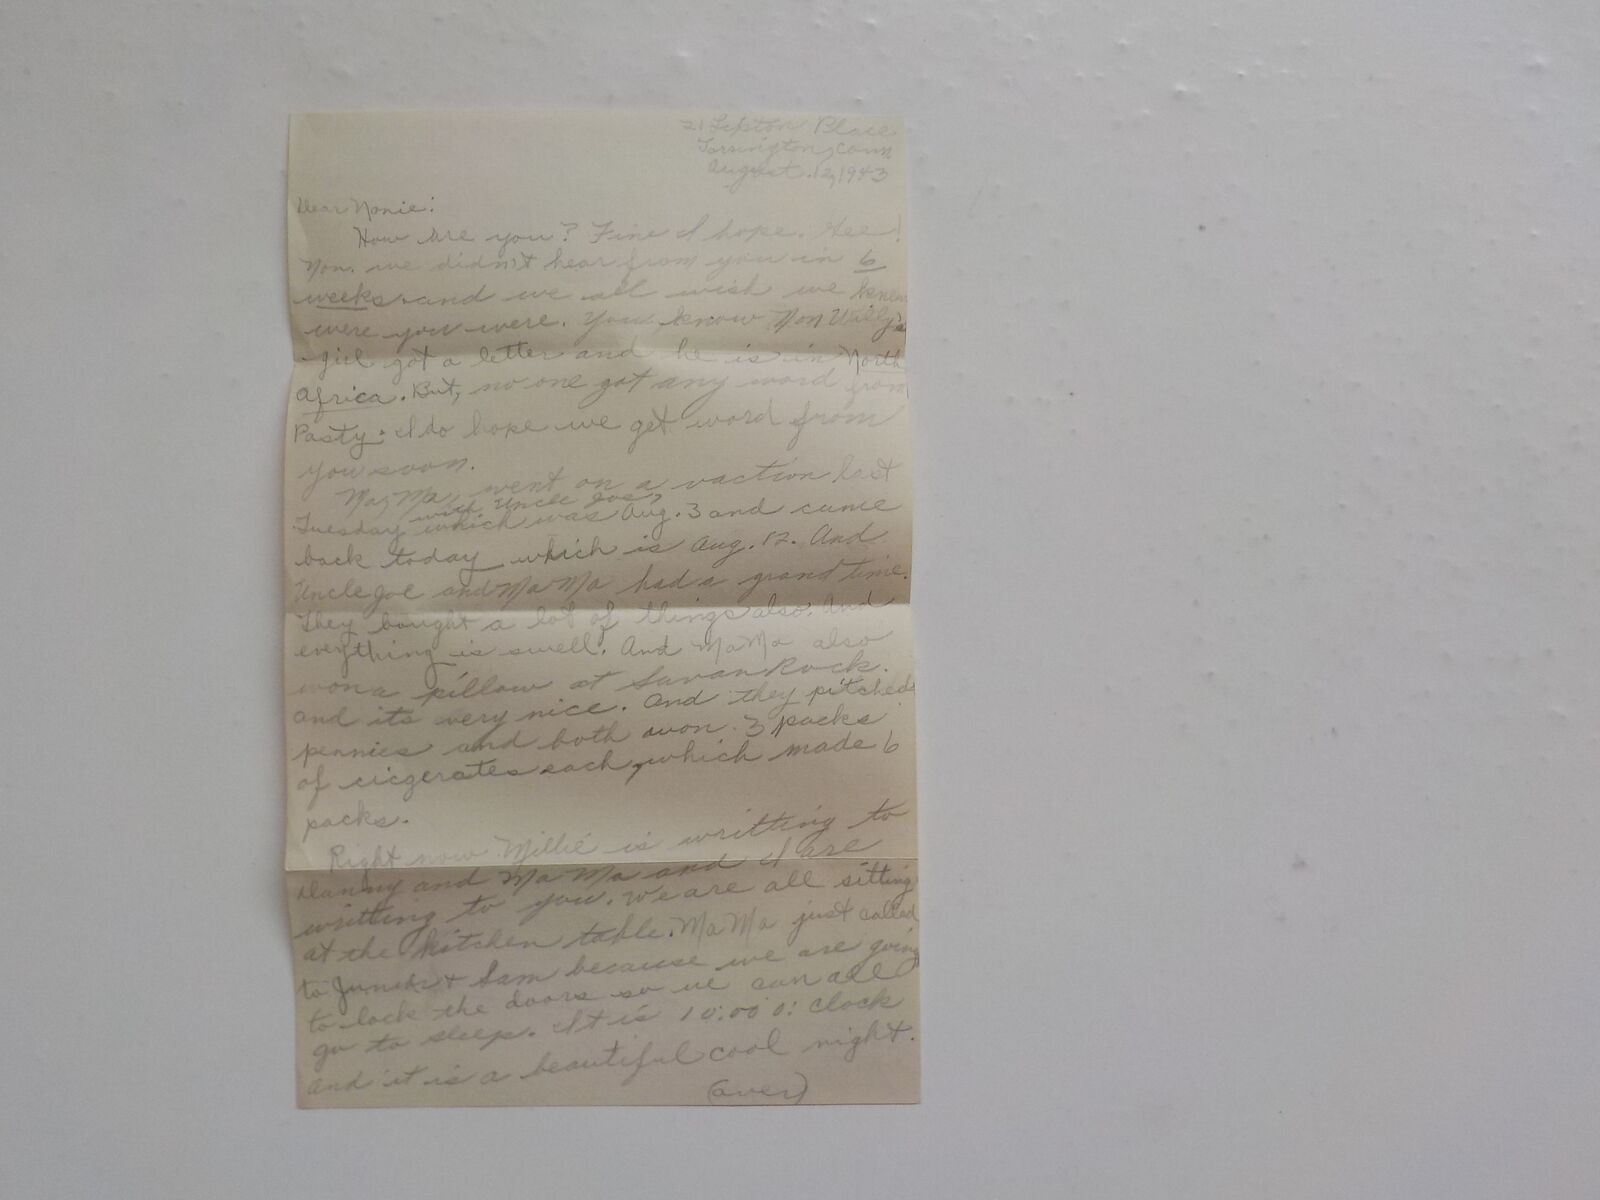 21 Lipton Place
Torrington, Conn
August. 12, 1943
Dear Nonie:
How are you? Fine I hope. Gee!
Non. we didn't hear from you in 6
weeks. and we all wish we knew
were you were. You know Non Willy's
girl got a letter and he is in North
Africa. But, no one got any word from
Pasty: I do hope we get word from
you soon.
Ma, Ma, went on a vaction last
with Uncle Joe,
Tuesday which was Aug. 3 and came
back today which is Aug. 12. And
Uncle Joe and Ma Ma had a grand time.
They bought a lot of things also. And
everything is swell. And Ma Ma also
won a pillow at Savan Rock.
and its very nice. And they pitched
pennies and both won 3 packs
of cicgerates each, which made 6
packs.
Right now Millie is writting to
Danny and Ma Ma and I are
writting to you. We are all sitting
at the kitchen table. Ma Ma just called
to Junior & Sam because we are going
to lock the doors so we can all
go to sleep. It is 10:00 O: clock
and it is a beautiful cool night.
(over)